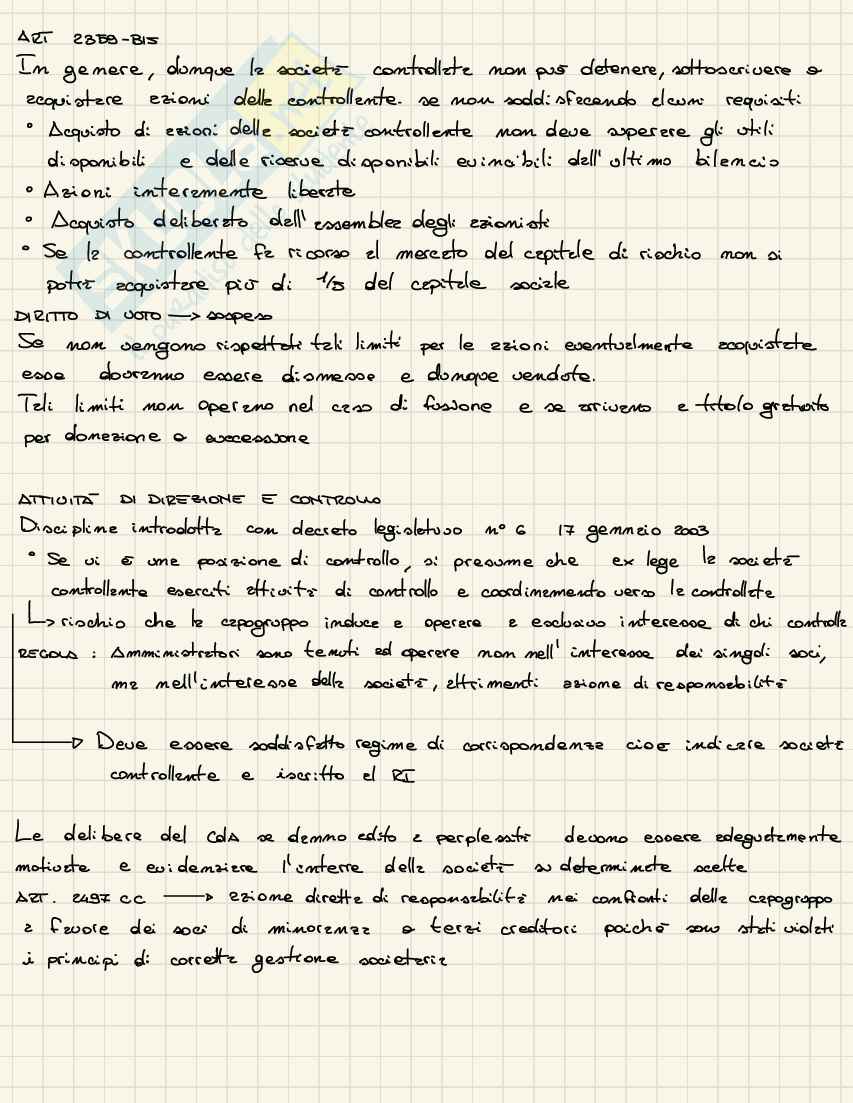 ART 2359-BIS
In genere, dunque la società controllata non può detenere, sottoscrivere o
acquistare azioni della controllante. se non soddisfacendo alcuni requisiti
• Acquisto di azioni della società controllante non deve superare gli utili
disponibili e delle riserve disponibili evincibili dall'ultimo bilancio
• Azioni interamente liberate
• Acquisto deliberato dall'assemblea degli azionisti
• Se la controllante fa ricorso al mercato del capitale di rischio non si
potrà acquistare più di 1/5 del capitale sociale
DIRITTO DI VOTO → sospeso
Se non vengono rispettati tali limiti per le azioni eventualmente acquistate
esse dovranno essere dismesse e dunque vendute.
Tali limiti non operano nel caso di fusione e se arrivano a titolo gratuito
per donazione o successione
ATTIVITÀ DI DIREZIONE E CONTROLLO
Disciplina introdotta con decreto legislativo n° 6 17 gennaio 2003
• Se vi è una posizione di controllo, si presume che ex lege la società
controllante eserciti attività di controllo e coordinamento verso la controllata
↳ rischio che la capogruppo induca a operare a esclusivo interesse di chi controlla
REGOLA : Amministratori sono tenuti ad operare non nell'interesse dei singoli soci,
ma nell'interesse della società, altrimenti azione di responsabilità
→ Deve essere soddisfatto regime di corrispondenza cioè indicare società
controllante e iscritto al RI
Le delibere del CdA se danno adito a perplessità devono essere adeguatamente
motivate e evidenziare l'interre della società su determinate scelte
ART. 2497 CC → azione diretta di responsabilità nei confronti della capogruppo
a favore dei soci di minoranza o terzi creditori poiché sono stati violati
i principi di corretta gestione societaria